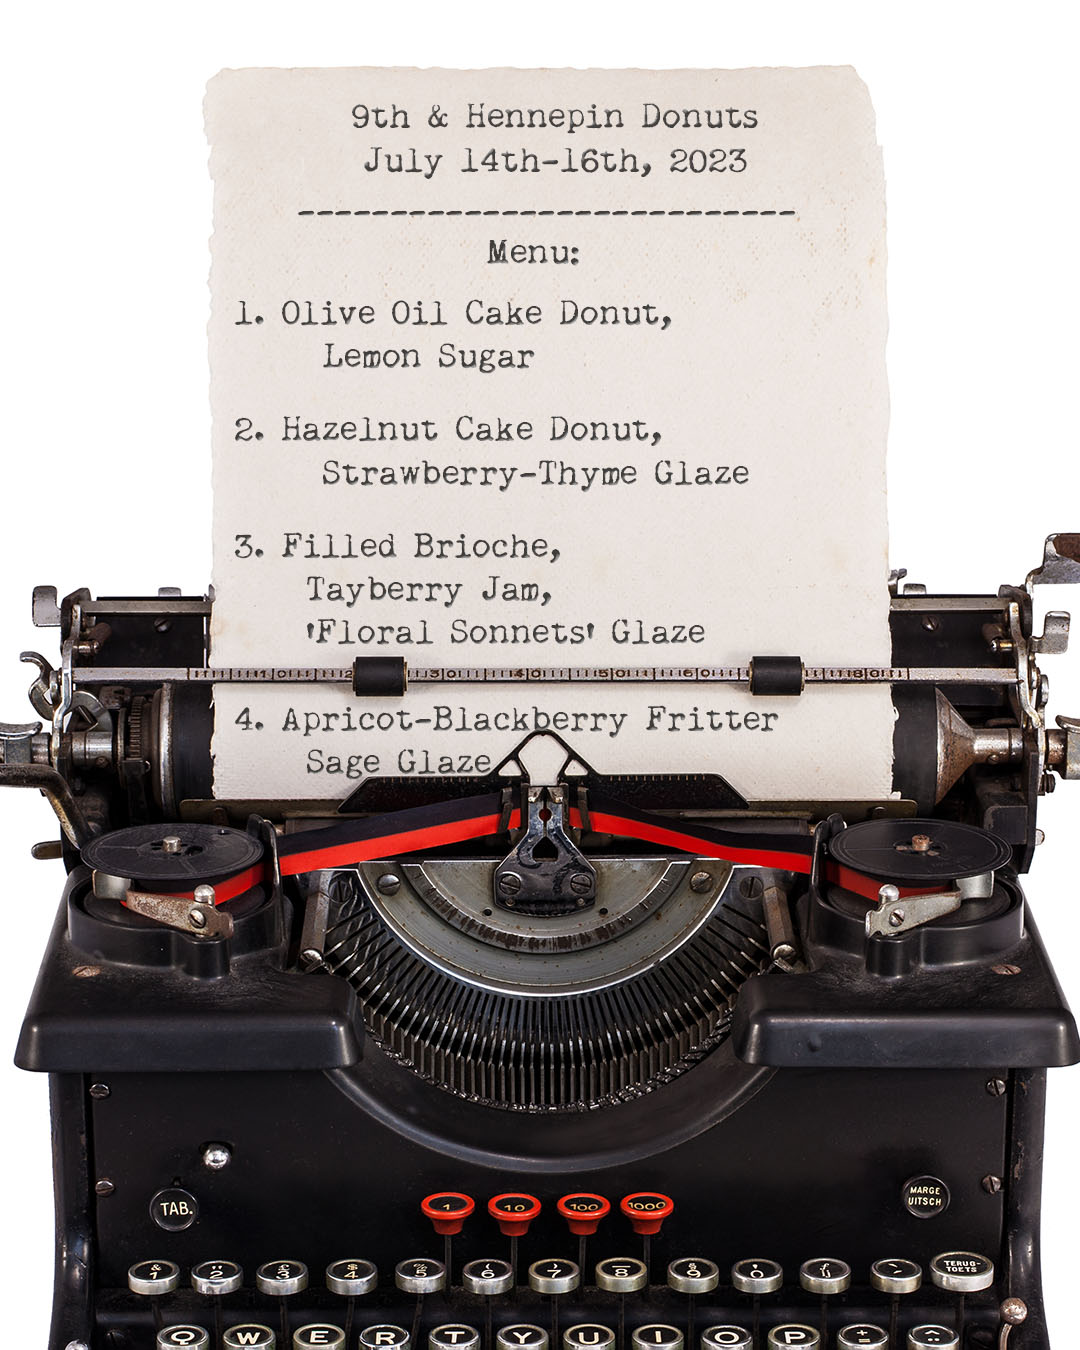 9th & Hennepin Donuts
July 14th-16th, 2023
---------------------------
Menu:
1. Olive Oil Cake Donut,
Lemon Sugar
2. Hazelnut Cake Donut,
Strawberry-Thyme Glaze
3. Filled Brioche,
Tayberry Jam,
'Floral Sonnets' Glaze
4. Apricot-Blackberry Fritter
Sage Glaze
TAB.
1 10 100 1000
MARGE
UITSCH
& 1 2 £ 3 $ 4 % 5 6 7 8 § 9 0
TERUG-
TOETS
Q W E R T Y U I O P